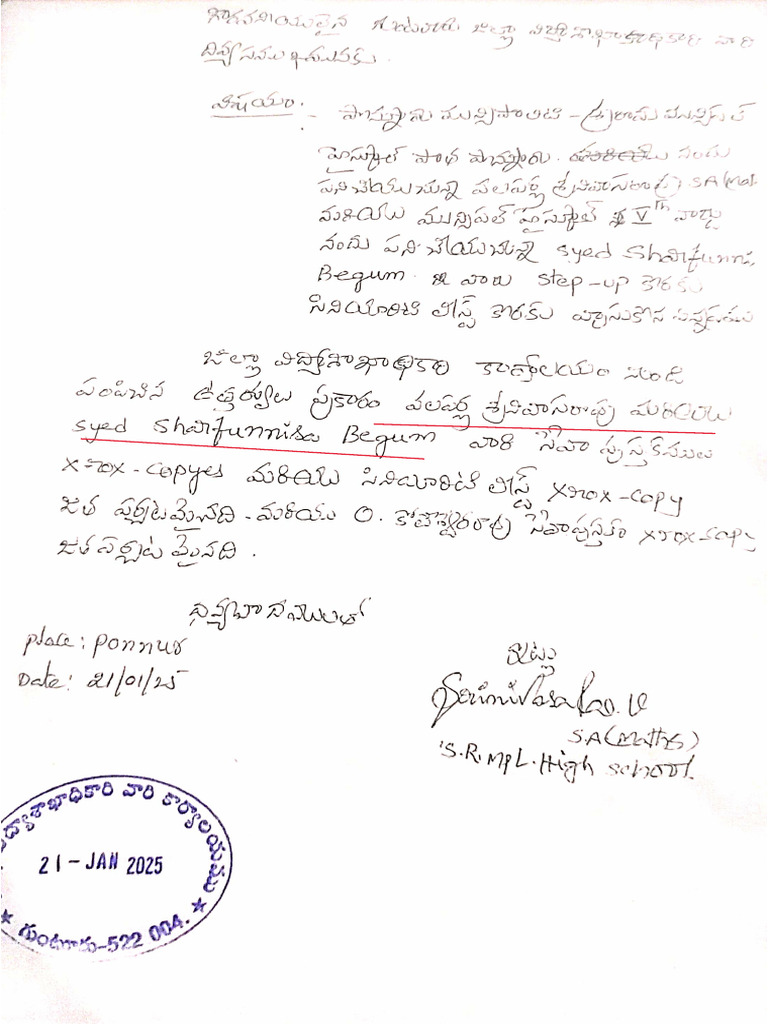 గౌరవనీయులైన గుంటూరు జిల్లా విద్యాశాఖాధికారి వారి
దివ్యసముఖమునకు.
విషయం :- పొన్నూరు మున్సిపాలిటి - శ్రీరాము మున్సిపల్
హైస్కూల్ పొన్నూరు. నందు
పనిచేయుచున్న వలపర్ల శ్రీనివాసరావు SA(Mat
మరియు మున్సిపల్ హైస్కూల్ Vth వార్డు
నందు పనిచేయుచున్న Syed Sharifunnisa
Begum. వారు Step-up కొరకు
సినియారిటి లీస్ట్ కొరకు
జిల్లా విద్యాశాఖాధికారి కార్యాలయం నుండి
పంపిచిన ఉత్తర్వులు ప్రకారం వలపర్ల శ్రీనివాసరావు మరియు
Syed Sharifunnisa Begum వారి సేవా పుస్తకముల
Xerox-copyes మరియు సినియారిటి లీస్ట్ Xerox-copy
జత పర్చటమైనది. మరియు O. కోటేశ్వరరావు సేవాపుస్తకం Xerox-copy
జత పర్చటమైనది.
ధన్యవాదములతో
Place: Ponnur
Date: 21/01/25
ఇట్లు
Srinivasa Rao. V
S.A (Maths)
S.R. Mpl. High School.
విద్యాశాఖాధికారి వారి కార్యాలయము
21-JAN 2025
గుంటూరు-522 004.